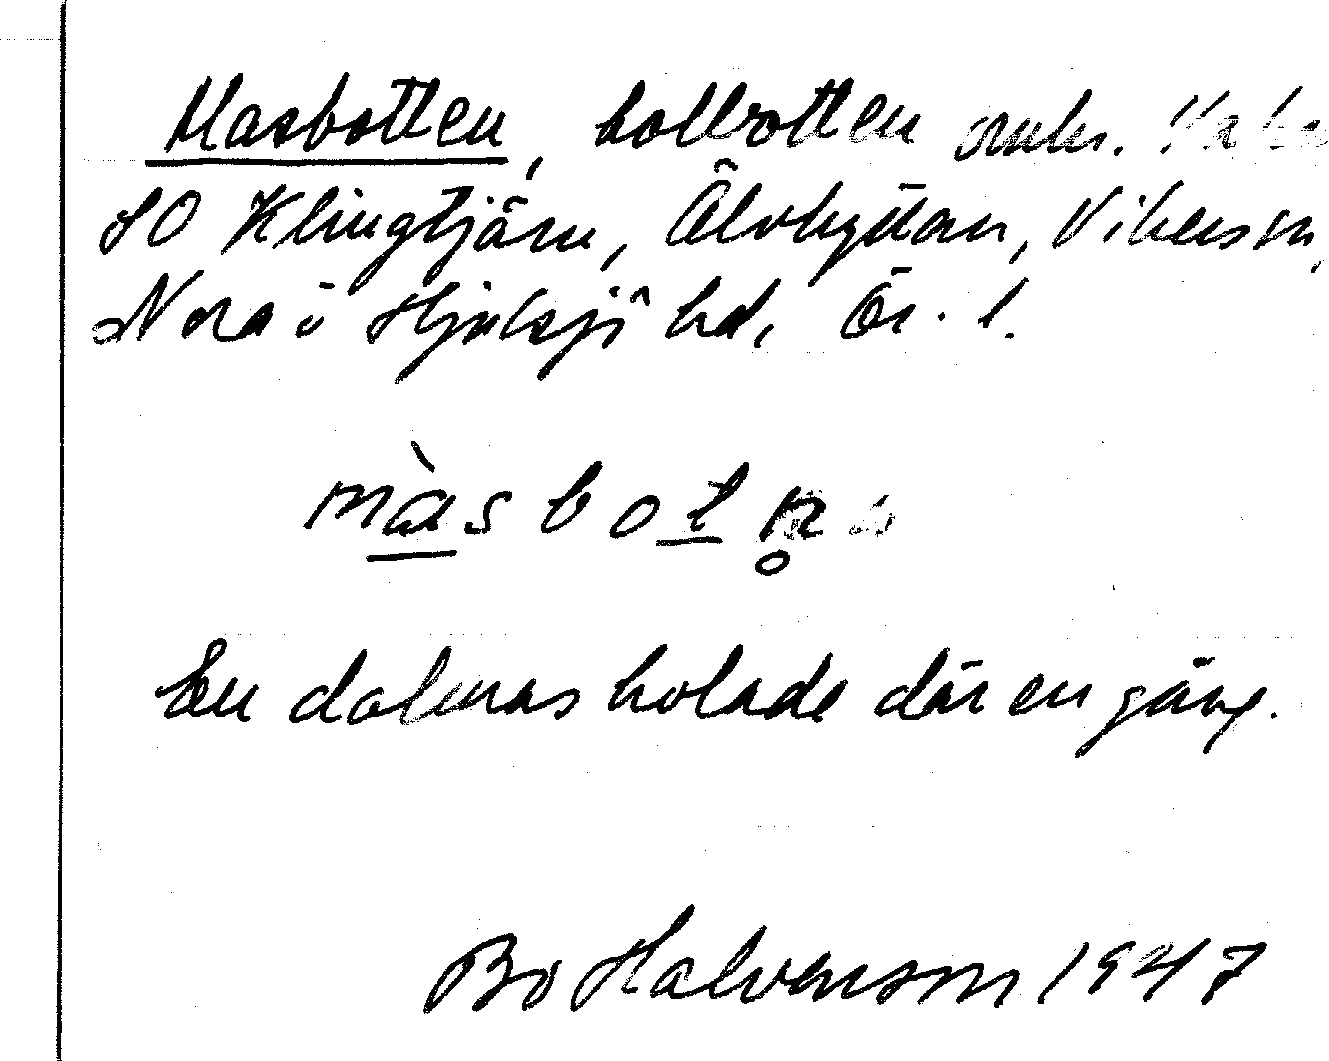 Masbotten, kolbotten
SO Klingtjärn, Älvhyttan, Vikers sn,
Nora o Hjulsjö hd, Ör. l.
màsbotn̥
En dalmas kolade där en gång.
Bo Halvarson 1947